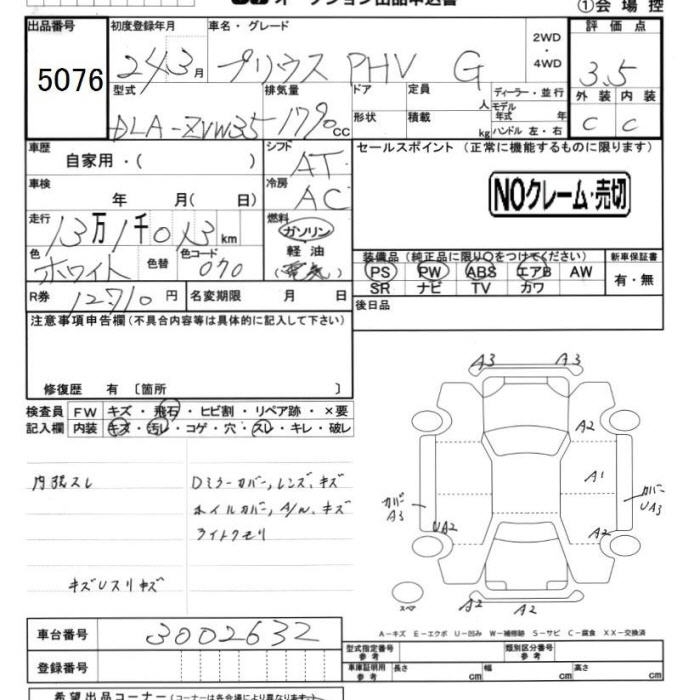 オークション出品申込書 ①会場控
出品番号 5076
初度登録年月 24年3月
車名・グレード プリウス PHV G
2WD・4WD
評価点 3.5
外装 C 内装 C
型式 DLA-ZVW35
排気量 1790cc
ドア 形状
定員 人
積載 kg
ディーラー・並行
モデル年式 年
ハンドル 左・右
車歴 自家用・( )
シフト AT
セールスポイント (正常に機能するものに限ります)
NOクレーム・売切
車検 年 月( 日)
冷房 AC
走行 13万1千013km
燃料 ガソリン 軽油 (電気)
色 ホワイト 色替 色コード 070
装備品 (純正品に限り○をつけてください) 新車保証書
PS PW ABS エアB AW 有・無
SR ナビ TV カワ
R券 12710円 名変期限 月 日
後日品
注意事項申告欄 (不具合内容等は具体的に記入して下さい)
修復歴 有 〔箇所 〕
検査員 FW キズ・飛石・ヒビ割・リペア跡・×要
記入欄 内装 キズ・汚レ・コゲ・穴・スレ・キレ・破レ
内張スレ
Dミラーカバー,レンズ,キズ
ホイルカバー,A/W,キズ
ライトクモリ
キズUスリキズ
A3 A3
A2
A1
カバー A3
UA2
A2
カバー UA3
スペア
A2 A2
A-キズ E-エクボ U-凹み W-補修跡 S-サビ C-腐食 XX-交換済
車台番号 3002632
型式指定番号 参考
類別区分番号 参考
登録番号
車庫証明用 参考 長さ cm 幅 cm 高さ cm
希望出品コーナー (コーナーは各会場により異なります)